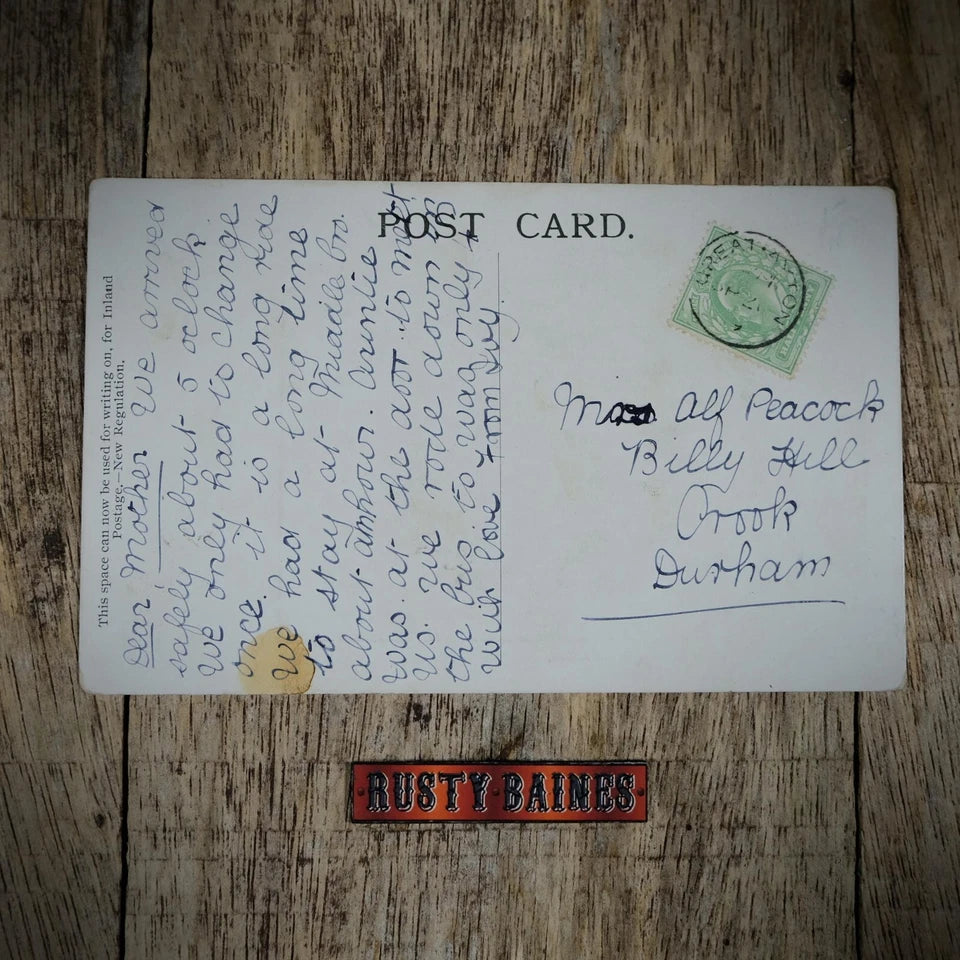 This space can now be used for writing on, for Inland
Postage.—New Regulation.
POST CARD.
Dear Mother We arrived
safely about 5 oclock
We only had to change
once. it is a long ride
We had a long time
to stay at Middlebro.
about anhour. Auntie
was at the door to meet
us. we rode down in
the bus to wag only
with love from Ivy.
GREAT AYTON
Alf Peacock
Billy Hill
Crook
Durham
RUSTY BAINES